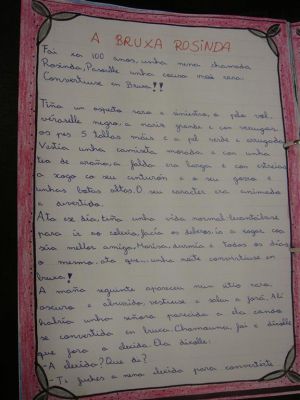 A BRUXA ROSINDA
Foi xa 100 anos, unha nena chamada
Rosinda, Pasoulle unha cousa moi rara.
Converteuse en Bruxa!!
Tiña un aspeto raro e sinistro, o pelo vol-
veraselle negro, a nariz grande e con verrugas,
os pes 5 tallas máis e a pel verde e arrugada.
Vestía unha camiseta morada e con unha
tea de araña, a falda era larga e con estrelas
a xogo co seu cinturón e o seu gorro e
unhas botas altas. O seu caracter era animado
e divertido.
Ata ese día, tiña unha vida normal: levantábase
para ir ao colexio, facía os deberes, ía a xogar coa
súa mellor amiga, Marisa, durmía e todos os días
o mesmo, ata que... unha noite converteuse en
bruxa!
A mañá seguinte apareceu nun sitio raro,
oscuro e aburrido, vestiuse e saleu a fora. Alí
había unha señora parecida a ela cando
se convertida en bruxa. Chamouna, foi e díxolle
que fora a decida. Ela díxolle:
-A decida? Que di?
-Ti fuches a nena decida para convertirte